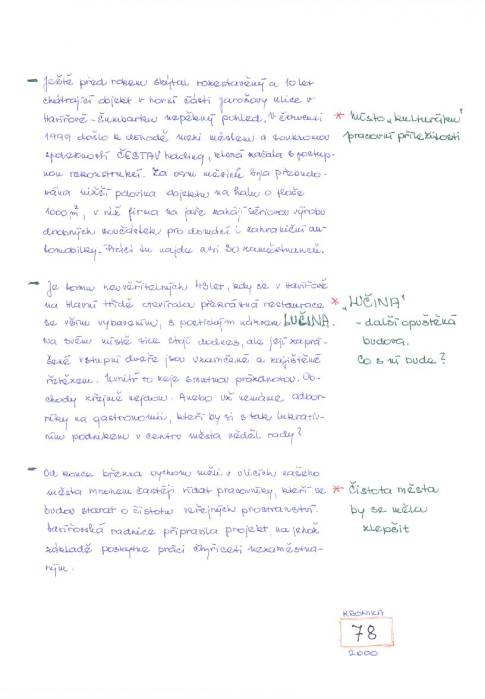 — Ještě před rokem skýtal rozestavěný a 10 let
chátrající objekt v horní části Jarošovy ulice v
Havířově - Šumbarku nepěkný pohled. V červenci
1999 došlo k dohodě mezi městem a soukromou
společností ČESTAV holding, která začala s postup-
nou rekonstrukcí. Za osm měsíců byla přebudo-
vána nižší polovina objektu na halu o ploše
1000 m², v níž firma na jaře zahájí sériovou výrobu
drobných součástek pro domácí i zahraniční au-
tomobilky. Práci tu najde asi 30 zaměstnanců.
* Místo „kulturáku"
pracovní příležitosti
— Je tomu neuvěřitelných 43 let, kdy se v Havířově
na Hlavní třídě otevírala překrásná restaurace
se vším vybavením, s poetickým názvem LUČINA.
Na svém místě sice stojí dodnes, ale její zaprá-
šené vstupní dveře jsou uzamčené a zajištěné
řetězem. Uvnitř to zeje smutnou prázdnotou. Ob-
chody zřejmě nejdou. Anebo už nemáme odbor-
níky na gastronomii, kteří by si s tak lukrativ-
ním podnikem v centru města věděl rady?
* „LUČINA"
- další opuštěná
budova.
Co s ní bude?
— Od konce března bychom měli v ulicích našeho
města mnohem častěji vídat pracovníky, kteří se
budou starat o čistotu veřejných prostranství.
Havířovská radnice připravila projekt, na jehož
základě poskytne práci čtyřiceti nezaměstna-
ným.
* Čistota města
by se měla
zlepšit
KRONIKA
78
2000